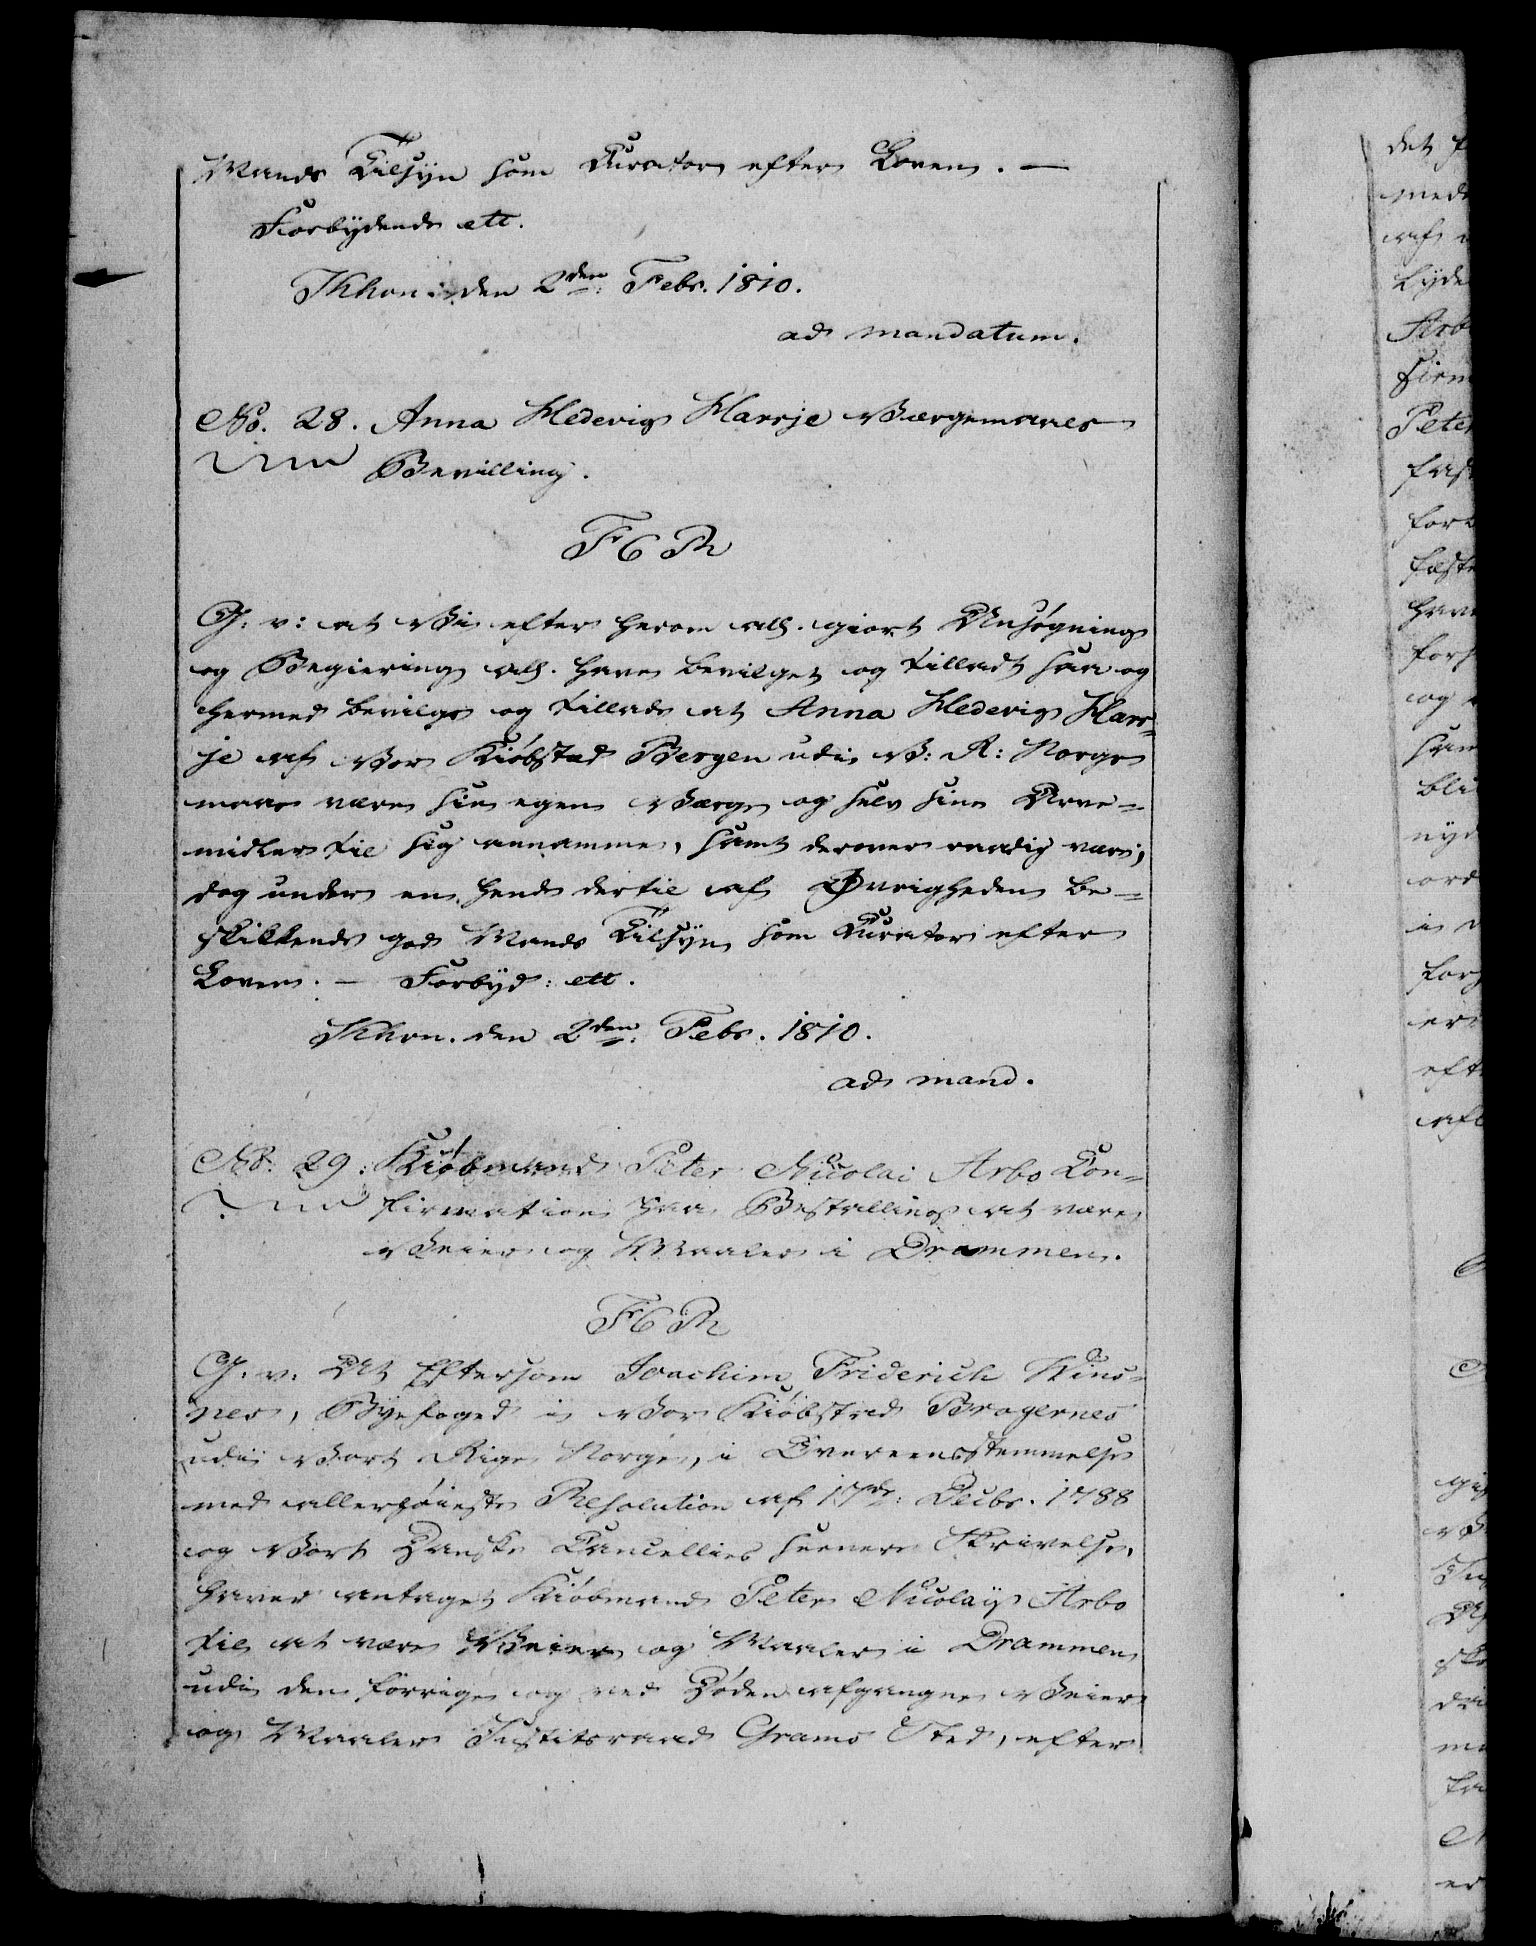 Mands Tilsyn som Curator efter Loven. —
Forbydende etc.
Khvn: den 2den Febr. 1810.
ad mandatum.
No. 28. Anna Hedevig Harsje Værgemaals
Bevilling.
F6R
G. v: at Vi efter herom all. giort Ansøgning
og Begiering all. have bevilget og tilladt saa og
hermed bevilge og tillade at Anna Hedevig Hars-
je af Vor Kiøbstad Bergen udi V: R: Norge
maae være sin egen Værge og selv sine Arve-
midler til sig annamme, samt derover raadig være,
dog under en hende dertil af Øvrigheden be-
skikkende god Mands Tilsyn som Curator efter
Loven. — Forbyd: etc.
Khvn. den 2den Febr. 1810.
ad mand.
No. 29. Kiøbmand Peter Nicolai Arbo Con-
firmation paa Bestalling at være
Veier og Maaler i Drammen.
F6R
G. v. At Eftersom Joachim Friderich
Byefoged i Vor Kiøbstad Bragernes
udi Vort Rige Norge, i Overeensstemmelse
med allerhøieste Resolution af 17de Decbr. 1788
og Vort Danske Cancellies seenere Skrivelse,
haver antaget Kiøbmand Peter Nicolay Arbo
til at være Veier og Maaler i Drammen
udi den forrige og ved Døden afgangne Veier
og Maaler Justitsraad Grams Sted, efter
det
med
af
lyde
Arb
firm
Peter
og
er